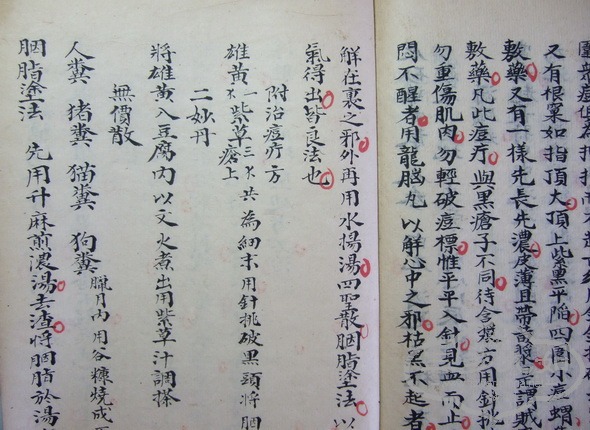 又有根窠如指頂大頂上紫黑平陷四圍小
敷藥又有一樣先長先濃皮薄且帶黃漿
敷藥凡此痘疔與黑瘡子不同待會漿方用針挑
勿重傷肌肉勿輕破痘標惟平平入針見血而止
悶不醒者用龍腦丸以解心中之邪枯黑不起者
解在裏之邪外再用水揚湯四聖散胭脂塗法以
氣得出皆良法也
附治痘疔方
雄黃一 紫草三 共為細末用針挑破黑頭將胭
瘡上
二妙丹
將雄黃入豆腐內以文火煮出用紫草汁調搽
無價散
人糞 猪糞 猫糞 狗糞 臘月內用谷糠燒成
胭脂塗法 先用升麻煎濃湯去渣將胭脂於湯